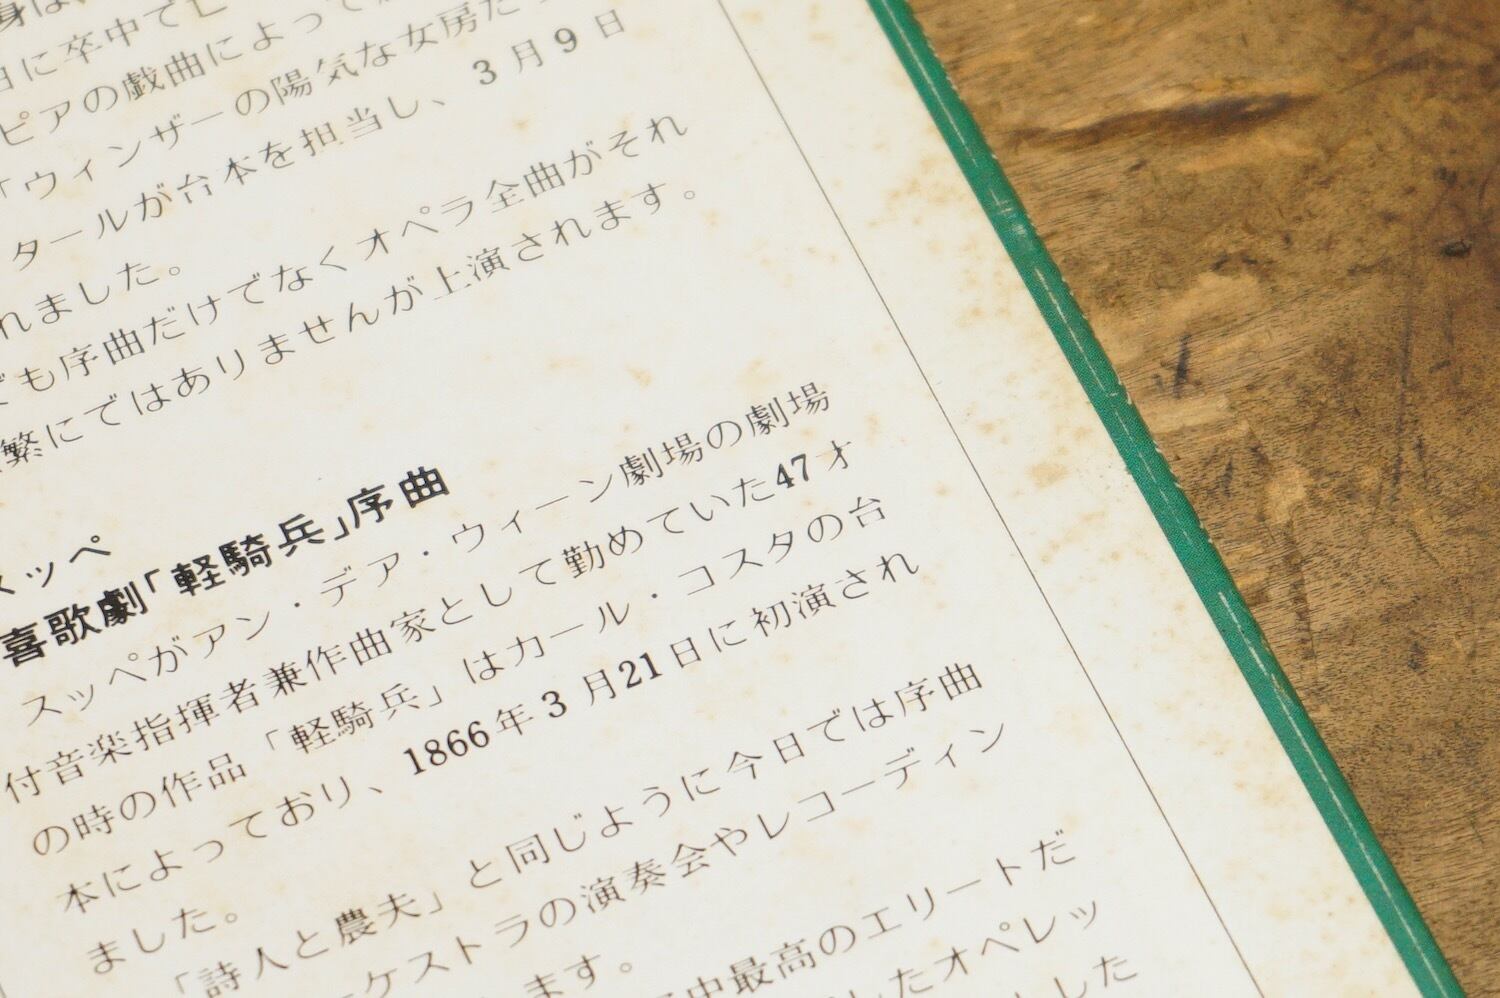 身は、
日に卒中で亡
ピアの戯曲によって
「ウィンザーの陽気な女房た
タールが台本を担当し、3月9日
れました。
も序曲だけでなくオペラ全曲がそれ
繁にではありませんが上演されます。
スッペ
喜歌劇「軽騎兵」序曲
スッペがアン・デア・ウィーン劇場の劇場
付音楽指揮者兼作曲家として勤めていた47才
の時の作品「軽騎兵」はカール・コスタの台
本によっており、1866年3月21日に初演され
ました。
「詩人と農夫」と同じように今日では序曲
ケストラの演奏会やレコーディン
ます。
中最高のエリートだ
したオペレッ
した